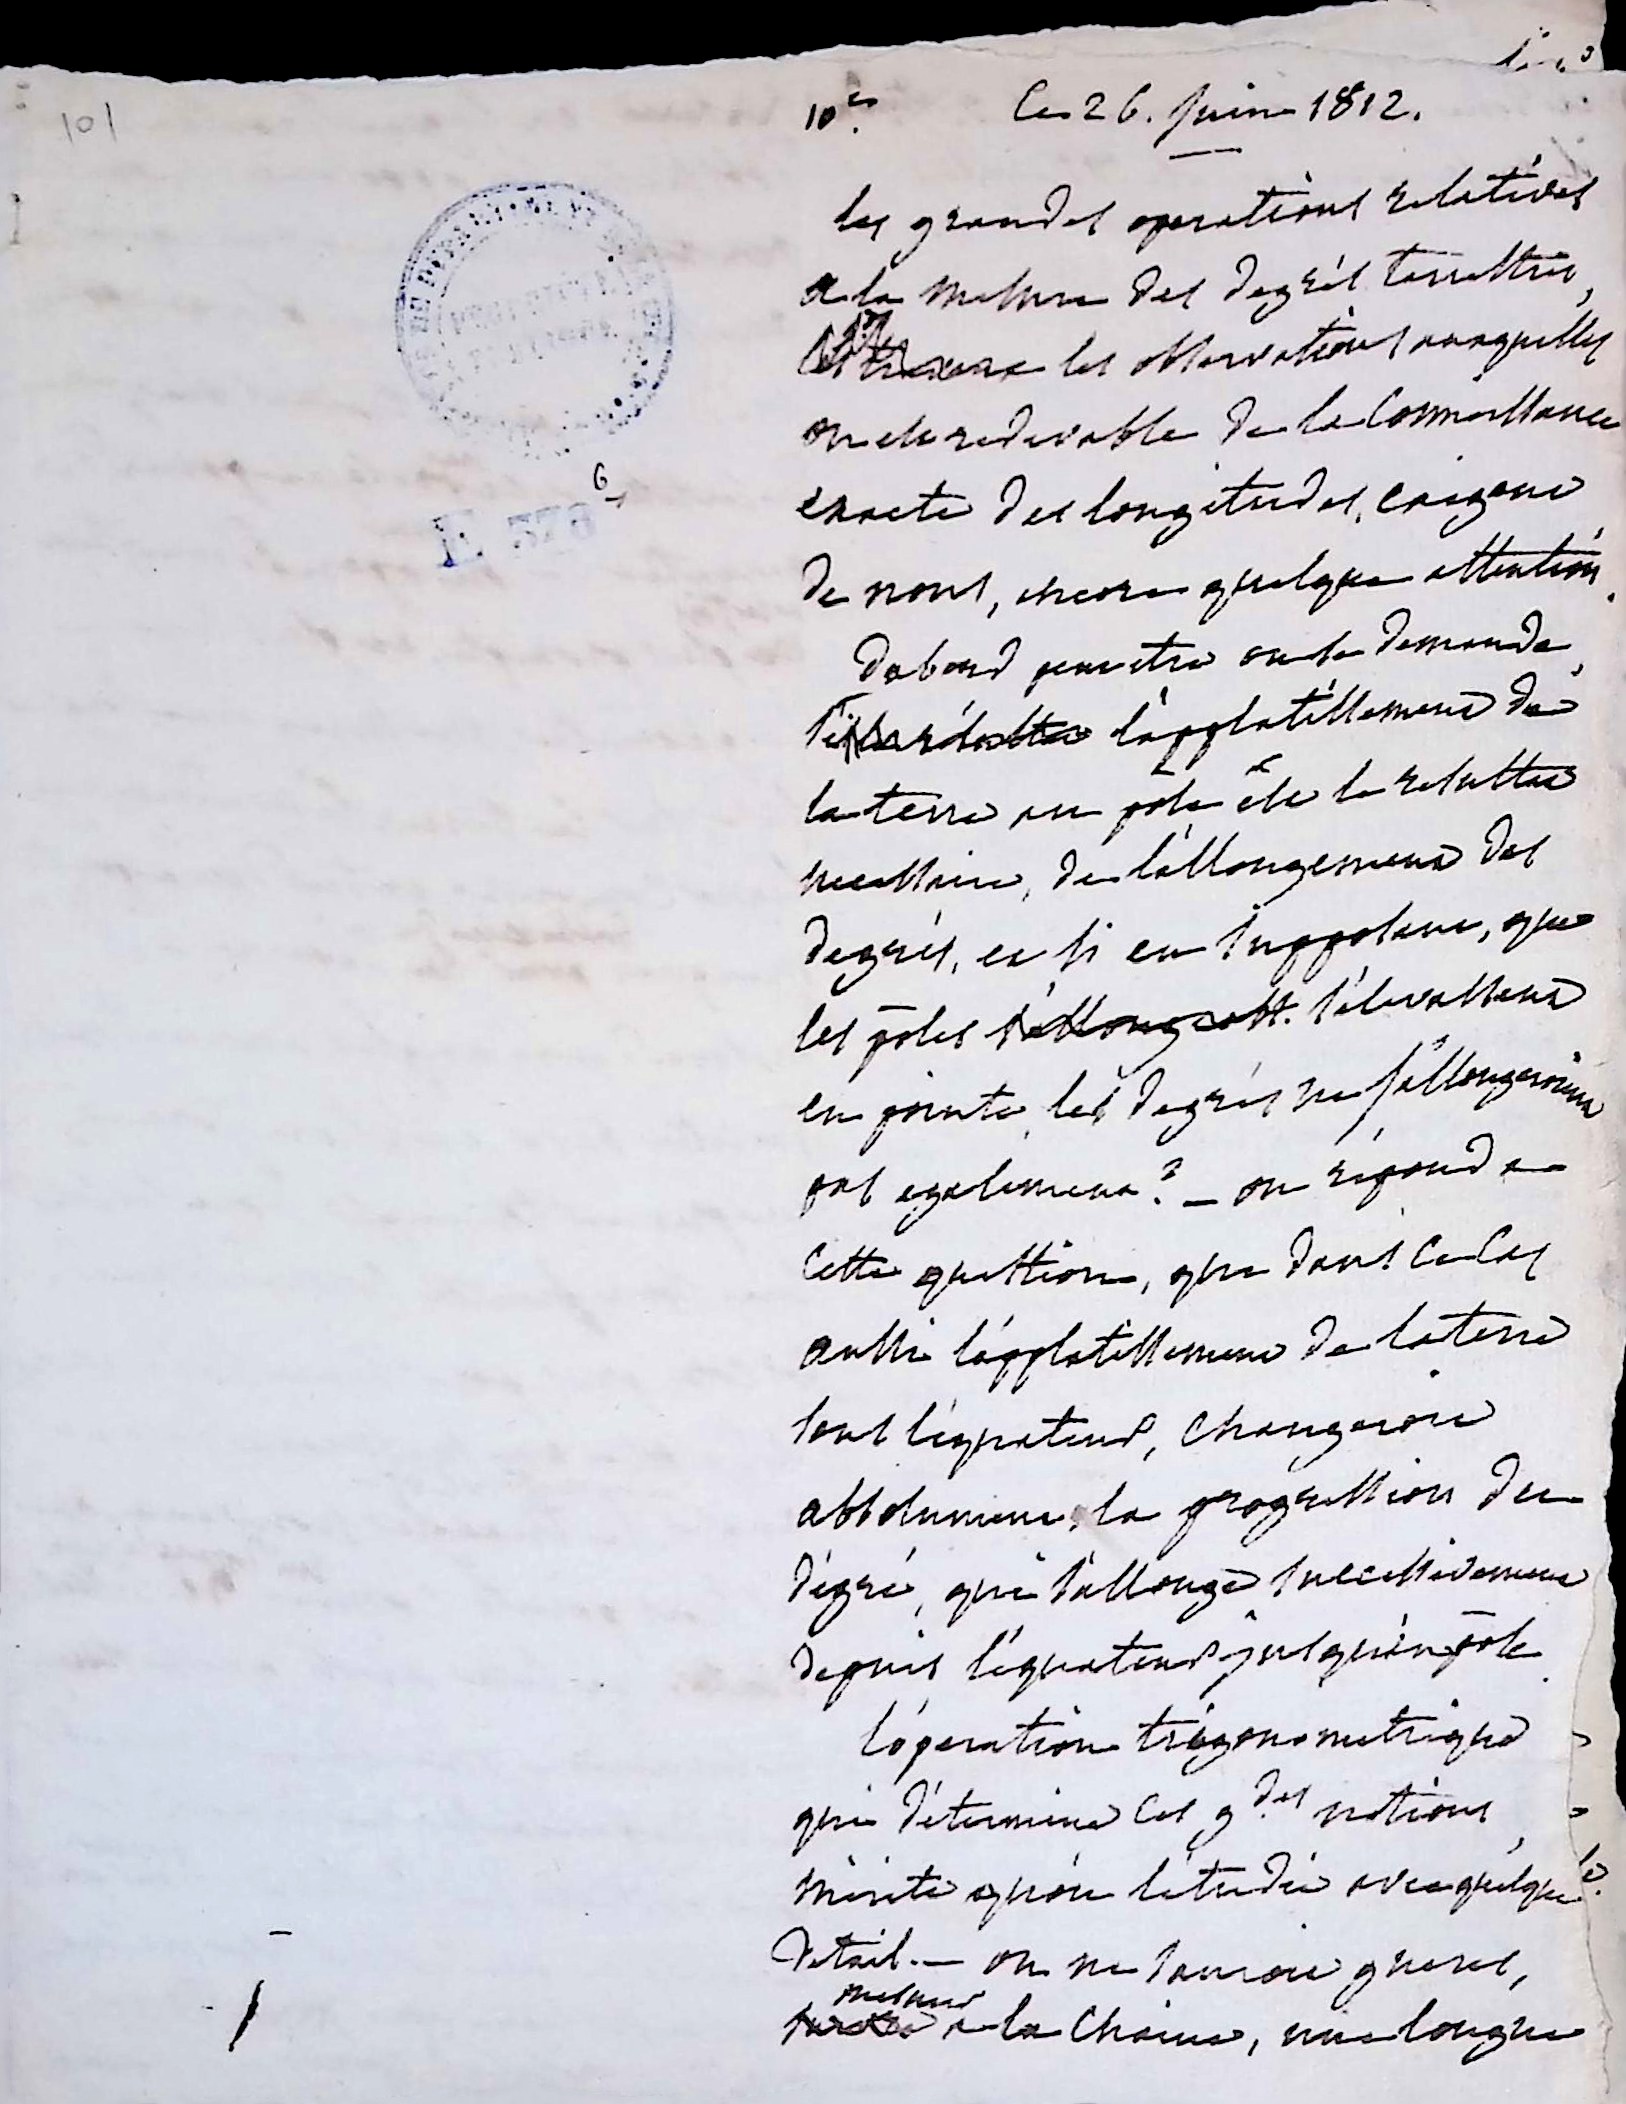 101
10e. Ce 26. Juin 1812.
les grandes operations relatives
a la mesure des degrés terrestres,
les observations auxquelles
on est redevable de la Connoissance
exacte des longitudes, exigent
de nous, encore quelque attention.
Dabord peut etre on se demande,
si l'applatissement de
la terre au pole est le resultat
necessaire, de l'allongement des
degrés, et si en supposant, que
les pôles s'allongeass. s'elevassent
en pointe, les degrés ne s'allongeroient
pas egalement? — on répond a
Cette question, que dans ce Cas
aussi l'applatissement de la terre
sous l'equateur, changeroit
absolument la progression du
dégré, qui s'allonge successivement
depuis l'équateur jusqu'au pôle.
l'operation trigonometrique
qui détermine ces g.des notions,
mérite qu'on l'etudie avec quelque
detail. — on ne sauroit gueres,
mesurer
a la Chaine, une longue
E 279
6